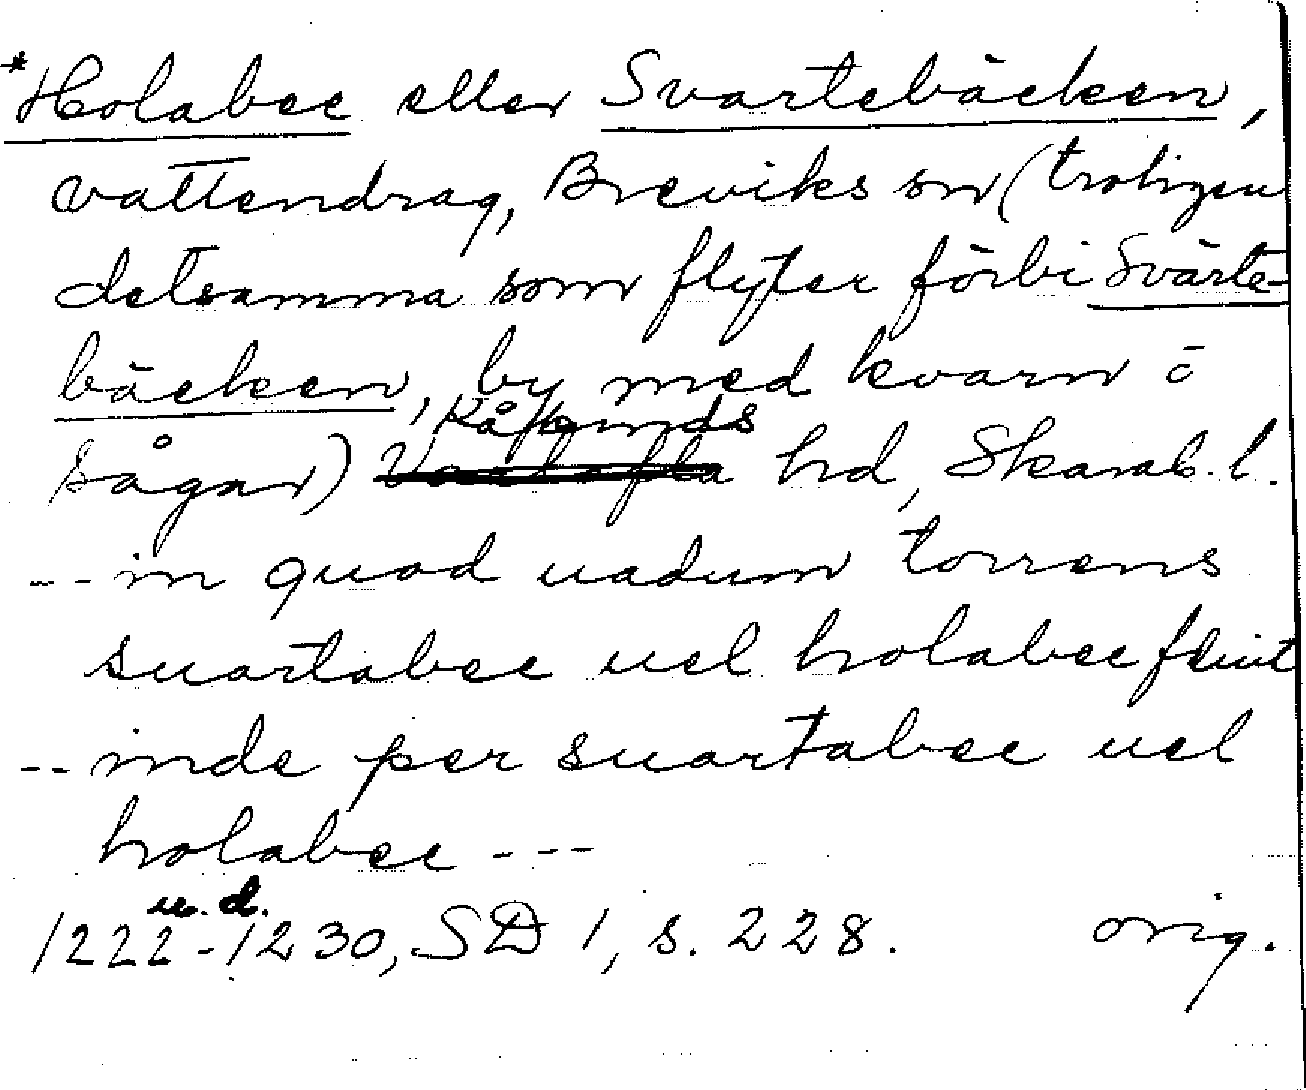 *Holabec eller Svartebäcken,
vattendrag, Breviks sn (troligen
detsamma som flyter förbi Svärte-
bäcken, by med kvarn o
Kåkinds
sågar) hd, Skarab. l.
-- in quod uadum torrens
suartabec uel holabec fluit
-- inde per suartabec uel
holabec ---
u. d.
1222-1230, SD 1, s. 228. orig.